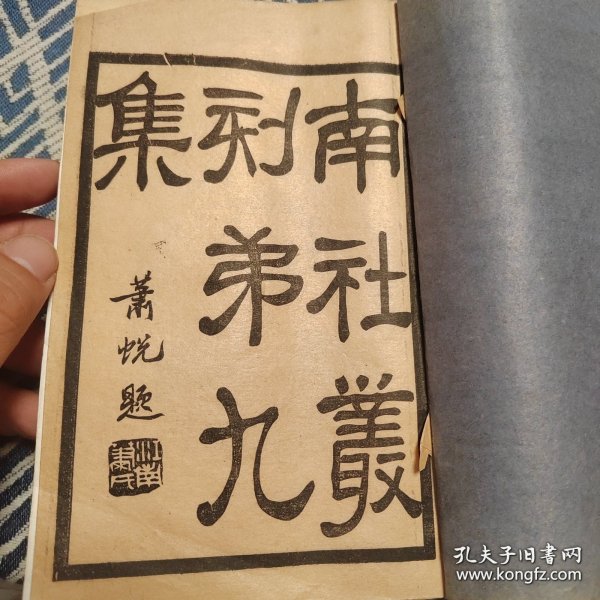 南社叢
刻弟九
集
蕭蛻題
江南蕭氏
孔夫子旧书网
www.kongfz.com